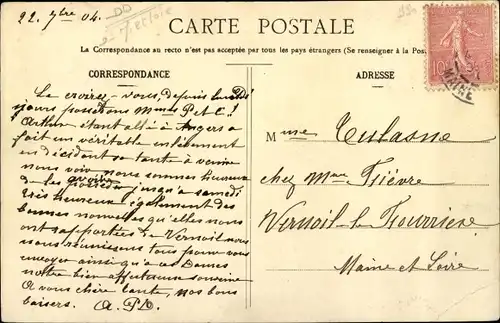 22. 7bre 04.
CARTE POSTALE
La Correspondance au recto n'est pas acceptée par tous les pays étrangers (Se renseigner à la Pos
CORRESPONDANCE
ADRESSE
Le croirez-vous depuis lundi
jours possédons Mmes P et C.!
Arthur étant allé à Angers a
fait un véritable enlèvement
en décidant sa tante à venir
nous voir nous sommes heureux
de les posséder jusqu'à samedi
très heureux également des
bonnes nouvelles qu'elles nous
ont apportées de Vernoil nous
nous réunissons tous pour vous
envoyer ainsi qu'à ces Dames
notre bien affectueux souvenir
A vous chère tante, nos bons
baisers. A.P.D.
Mme Tulasne
chez Mme Fièvre
Vernoil-le-Fourrier
Maine et Loire
10